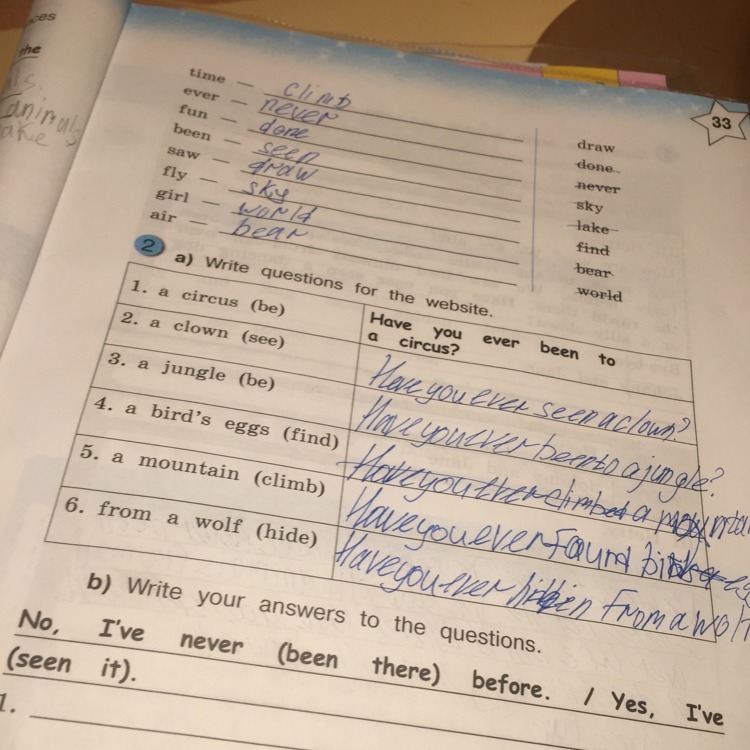 ces
the
als.
animals
ake
33
time — climb
ever — never
fun — done
been — seen
saw — draw
fly — sky
girl — world
air — bear
draw
done
never
sky
lake
find
bear
world
2 a) Write questions for the website.
1. a circus (be)
Have you ever been to
a circus?
2. a clown (see)
Have you ever seen a clown?
3. a jungle (be)
Have you ever been to a jungle?
4. a bird's eggs (find)
Have you ever climbed a
5. a mountain (climb)
Have you ever found
6. from a wolf (hide)
Have you ever hidden from a wolf
b) Write your answers to the questions.
No, I've never (been there) before. / Yes, I've
(seen it).
1.